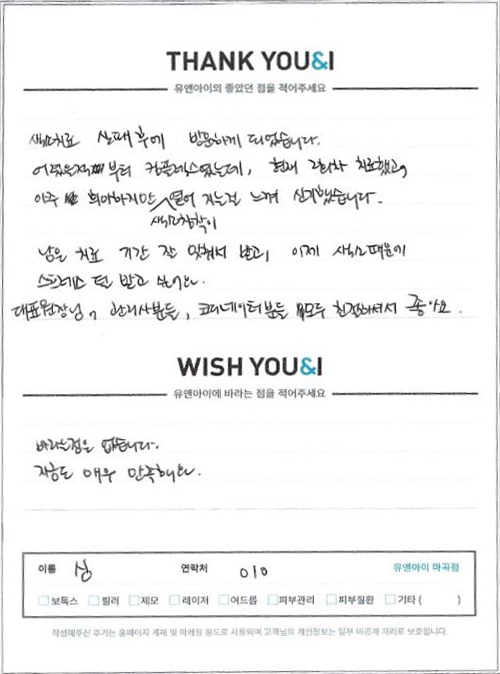 THANK YOU&I
유앤아이의 좋았던 점을 적어주세요
색소치료 실패 후에 방문하게 되었습니다.
어렸을적부터 컴플렉스였는데, 현재 2회차 치료했고,
아주 희미하지만 옅어 지는걸 느껴 신기했습니다.
색소침착이
남은 치료 기간 잘 맞춰서 받고, 이제 색소때문에
스트레스 덜 받고 싶어요.
대표원장님, 관리사분들, 코디네이터분들 모두 친절하셔서 좋아요.
WISH YOU&I
유앤아이에 바라는 점을 적어주세요
바라는점은 없습니다.
지금도 매우 만족해요.
이름 심 연락처 010 유앤아이 마곡점
보톡스 필러 제모 레이저 여드름 피부관리 피부질환 기타 ( )
작성해주신 후기는 홈페이지 게재 및 마케팅 용도로 사용되며 고객님의 개인정보는 일부 비공개 처리로 보호됩니다.